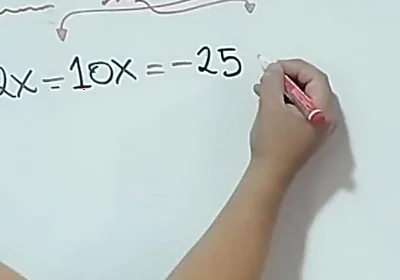 2x - 10x = -25